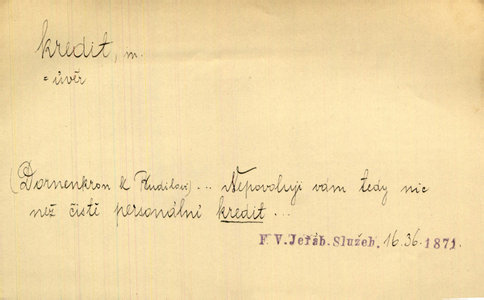 kredit, m.
= úvěr
(Dornenkron k Rudilovi) ... Nepovoluji vám tedy nic
než čistě personální kredit ...
F. V. Jeřáb. Služeb. 16.36.1871.